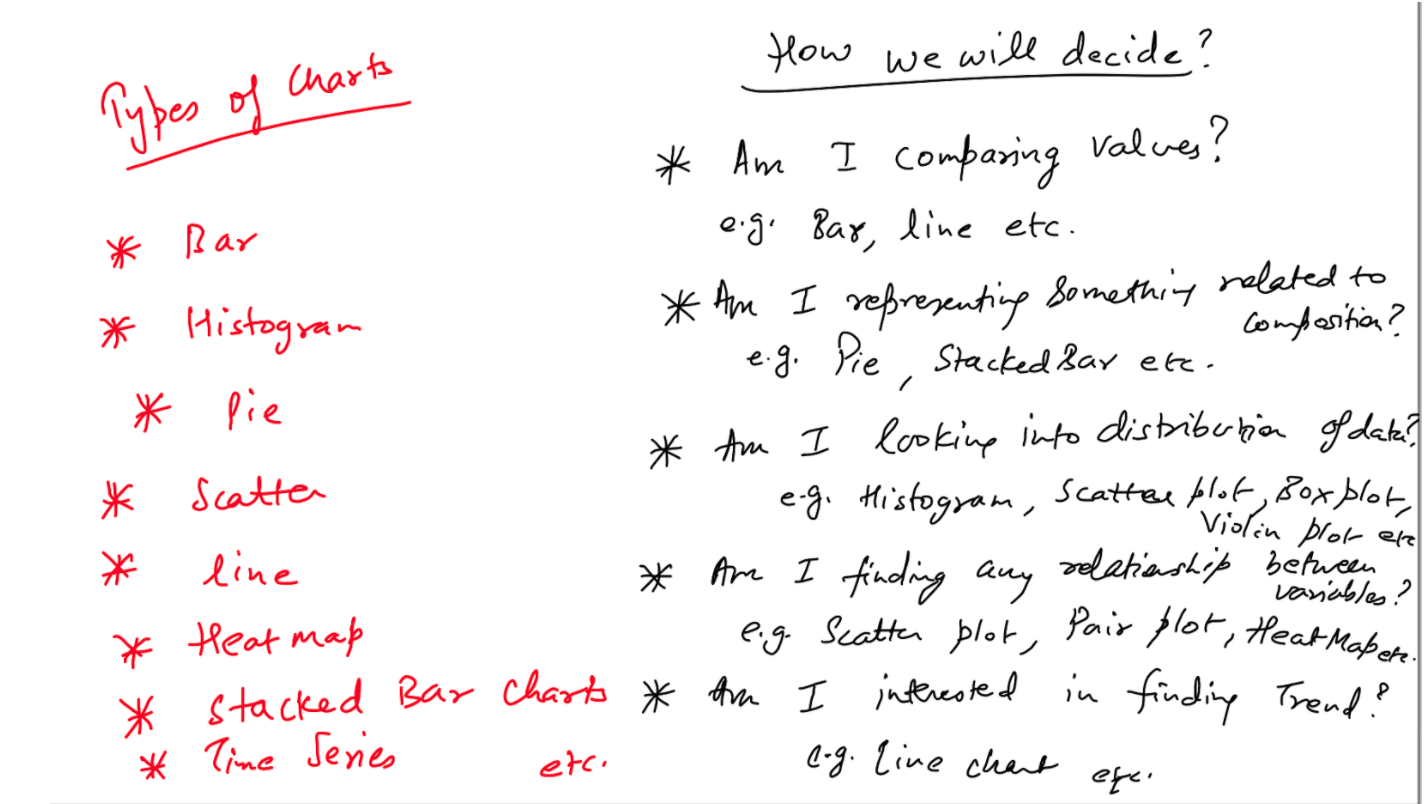 Types of Charts
* Bar
* Histogram
* Pie
* Scatter
* line
* Heat map
* Stacked Bar Charts
* Time Series etc.
How we will decide?
* Am I comparing values?
e.g. Bar, line etc.
* Am I representing Something related to
Composition?
e.g. Pie, Stacked Bar etc.
* Am I looking into distribution of data?
e.g. Histogram, Scatter plot, Box plot,
Violin plot etc
* Am I finding any relationship between
variables?
e.g. Scatter plot, Pair plot, Heat Map etc.
* Am I interested in finding Trend?
e.g. line chart etc.